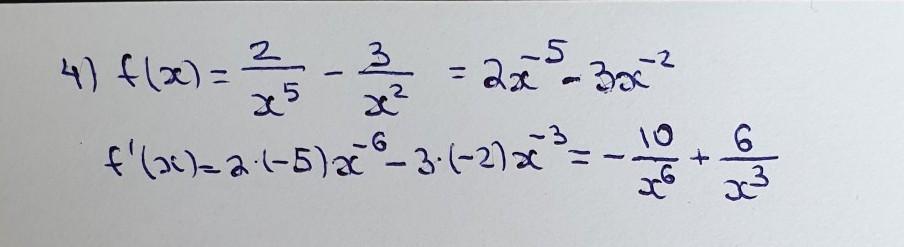 4) f(x) = 2/x⁵ - 3/x² = 2x⁻⁵ - 3x⁻²
f'(x) = 2·(-5)x⁻⁶ - 3·(-2)x⁻³ = -10/x⁶ + 6/x³